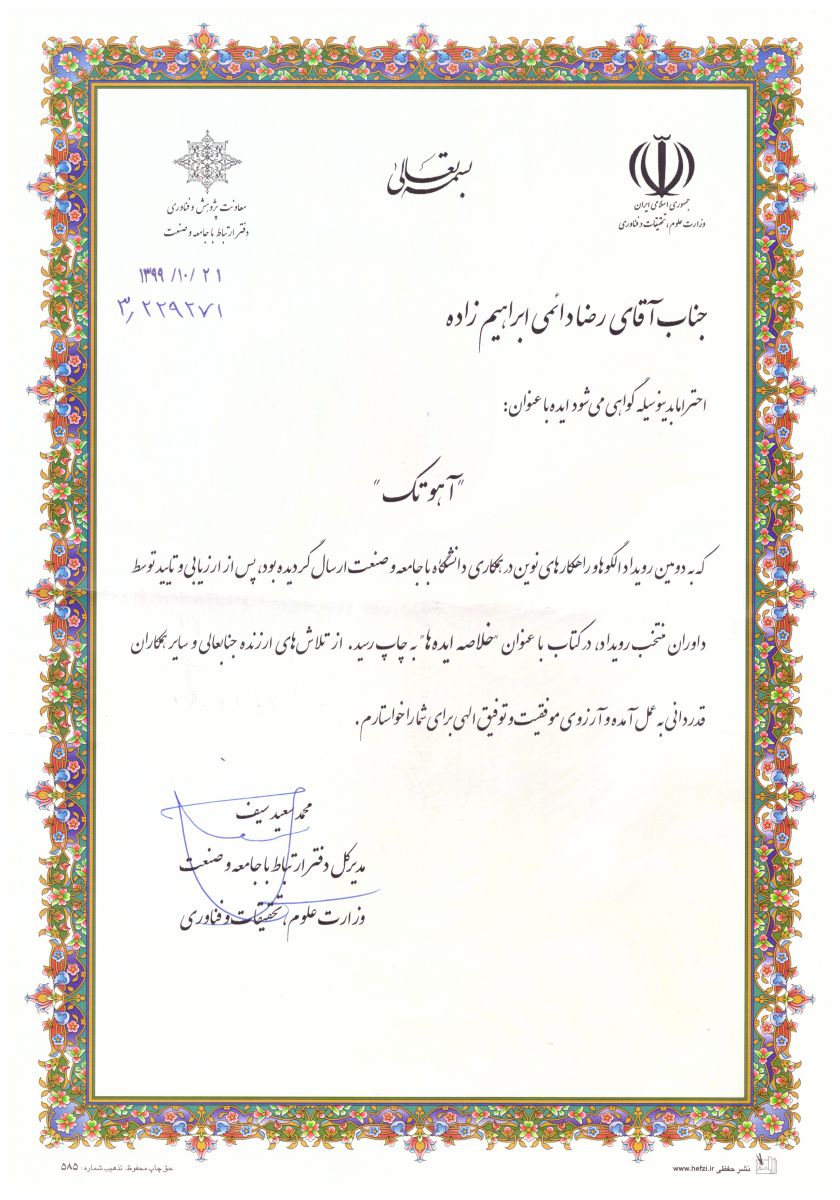 بسمه تعالی
جمهوری اسلامی ایران
وزارت علوم، تحقیقات و فناوری
معاونت پژوهش و فناوری
دفتر ارتباط با جامعه و صنعت
۱۳۹۹/۱۰/۲۱
۳٫۲۲۹۲۷۱
جناب آقای رضا دائمی ابراهیم زاده
احتراما بدینوسیله گواهی می شود ایده با عنوان:
"آهوتک"
که به دومین رویداد الگوها و راهکارهای نوین در همکاری دانشگاه با جامعه و صنعت ارسال گردیده بود، پس از ارزیابی و تایید توسط
داوران منتخب رویداد، در کتاب با عنوان "خلاصه ایده ها" به چاپ رسید. از تلاش های ارزنده جنابعالی و سایر همکاران
قدردانی به عمل آمده و آرزوی موفقیت و توفیق الهی برای شما را خواستارم.
محمد سعید سیف
مدیرکل دفتر ارتباط با جامعه و صنعت
وزارت علوم، تحقیقات و فناوری
نشر حفظی www.hefzi.ir
حق چاپ محفوظ. تذهیب شماره: ۵۸۵